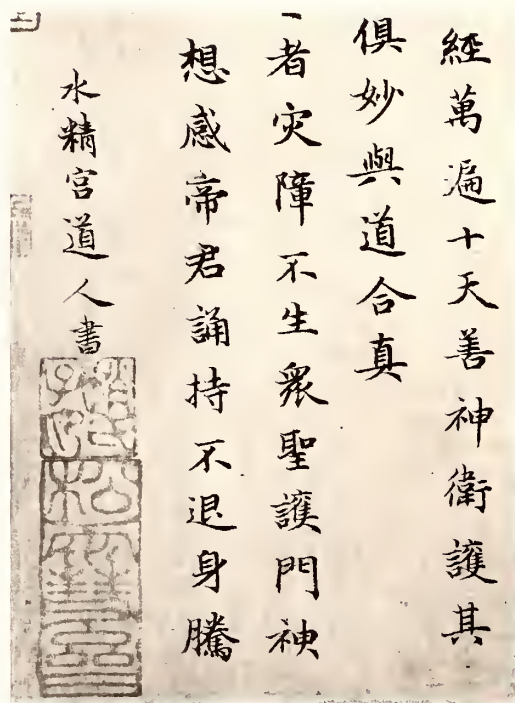 經萬遍十天善神衛護其
俱妙與道合真
者灾障不生衆聖護門神
想感帝君誦持不退身騰
水精宮道人書